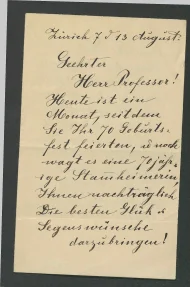 Zürich 7 d 13 August.
Geehrter
Herr Professor!
Heute ist ein
Monat, seitdem
Sie Ihr 70 Geburts-
fest feierten, u noch
wagt es eine 70 jäh-
rige Stamheimerin,
Ihnen nachträglich,
Die besten Glük &
Segenswünsche
darzubringen!